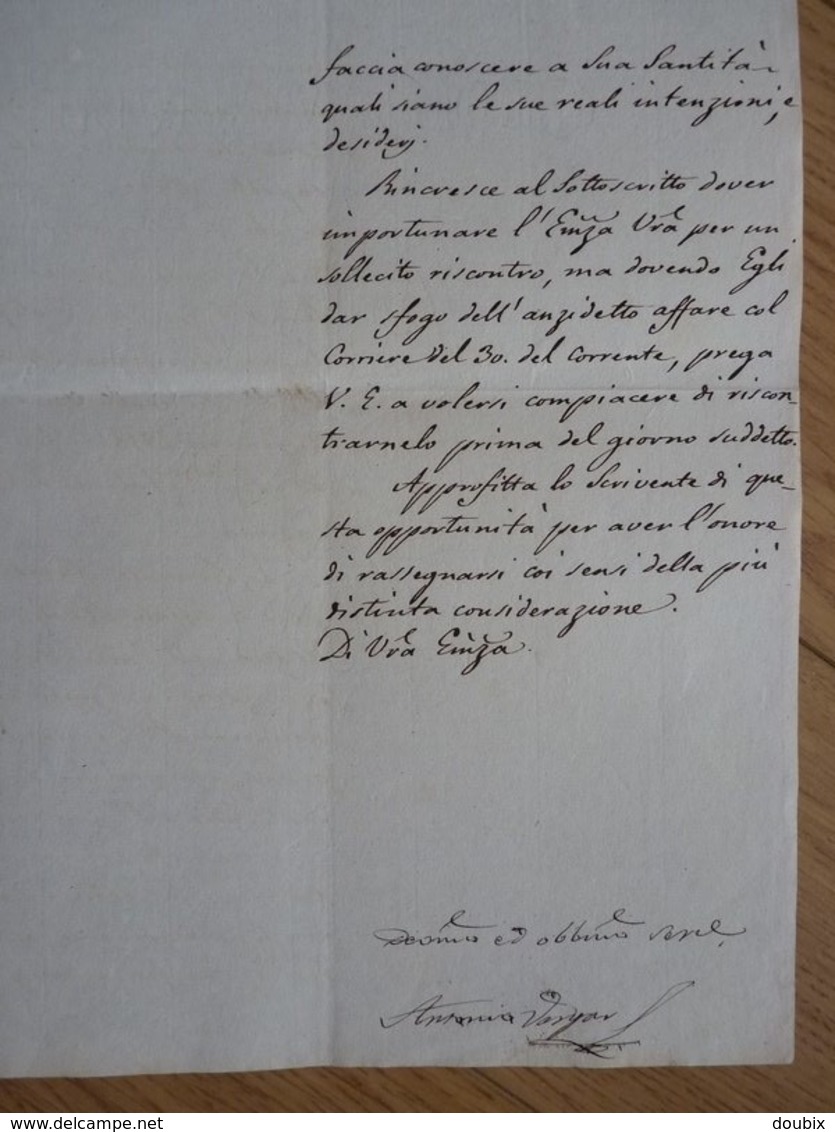 faccia conoscere a Sua Santità
quali siano le sue reali intenzioni, e
desiderj.
Rincresce al Sottoscritto dover
importunare l'Em̃za Vrã per un
sollecito riscontro, ma dovendo Egli
dar sfogo dell'anzidetto affare col
Corriere del 30. del corrente, prega
V. E. a volersi compiacere di riscon-
trarnelo prima del giorno suddetto.
Approfitta lo Scrivente di que-
sta opportunità per aver l'onore
di rassegnarsi coi sensi della più
distinta considerazione.
Di Vrã Em̃za.
ed obbmo
Antonio Vargas
www.delcampe.net
doubix